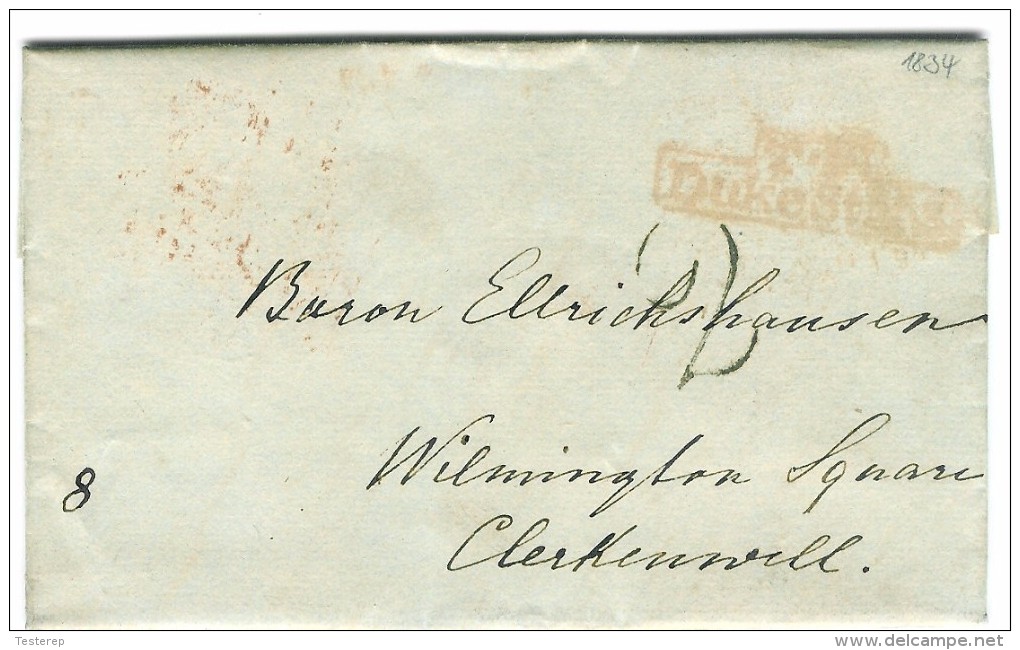 1834
Duke Street
Baron Ellrichshausen
Wilmington Square
8
Clerkenwell.
Testerep
www.delcampe.net